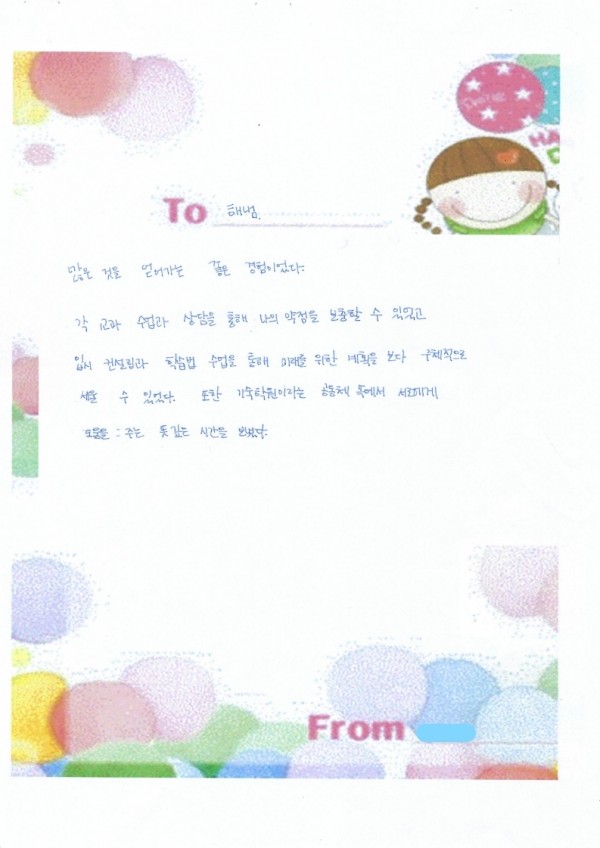 HA
To 해냄
많은 것을 얻어가는 값은 경험이었다.
각 교과 수업과 상담을 통해 나의 약점을 보충할 수 있었고
입시 컨설팅과 학습법 수업을 통해 미래를 위한 계획을 보다 구체적으로
세울 수 있었다. 또한 기숙학원이라는 공동체 속에서 서로에게
도움을 주는 뜻깊은 시간을 보냈다.
From